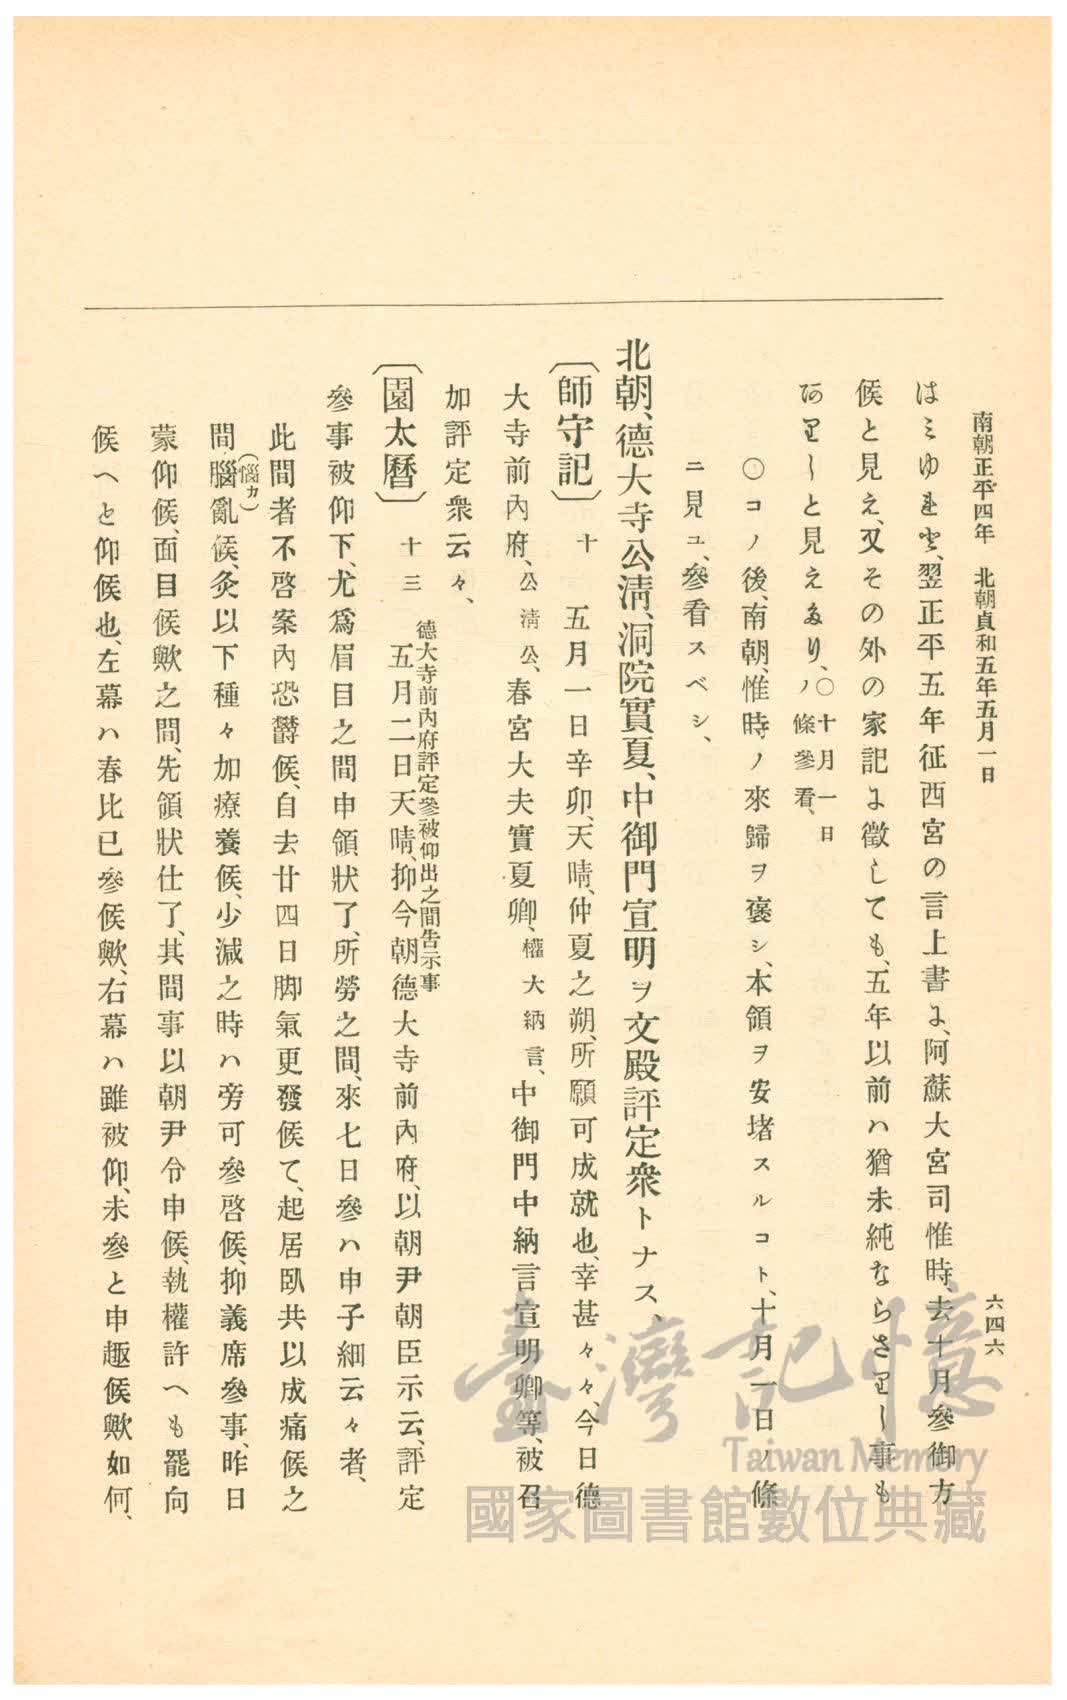 南朝正平四年　北朝貞和五年五月一日
六四六
はミゆれど、翌正平五年征西宮の言上書に、阿蘇大宮司惟時、去十月參御方
候と見え、又その外の家記に徵しても、五年以前ハ猶未純ならざりし事も
ありしと見えたり、〇十月一日ノ條參看、
〇コノ後、南朝、惟時ノ來歸ヲ褒シ、本領ヲ安堵スルコト、十月一日ノ條
ニ見ユ、參看スベシ、
北朝、德大寺公淸、洞院實夏、中御門宣明ヲ文殿評定衆トナス、
〔師守記〕十　五月一日辛卯、天晴、仲夏之朔、所願可成就也、幸甚々々、今日德
大寺前內府、公淸公、春宮大夫實夏卿、權大納言、中御門中納言宣明卿等、被召
加評定衆云々、
〔園太曆〕十三　德大寺前內府評定參被仰出之間告示事
五月二日天晴、抑今朝德大寺前內府、以朝尹朝臣示云、評定
參事被仰下、尤爲眉目之間申領狀了、所勞之間、來七日參ハ申子細云々者、
此間者不啓案內恐欝候、自去廿四日脚氣更發候て、起居臥共以成痛候之
間腦（惱カ）亂候、灸以下種々加療養候、少減之時ハ旁可參啓候、抑義席參事、昨日
蒙仰候、面目候歟之間、先領狀仕了、其間事以朝尹令申候、執權許へも罷向
候へと仰候也、左幕ハ春比已參候歟、右幕ハ雖被仰、未參と申趣候歟如何、
臺灣記憶
Taiwan Memory
國家圖書館數位典藏